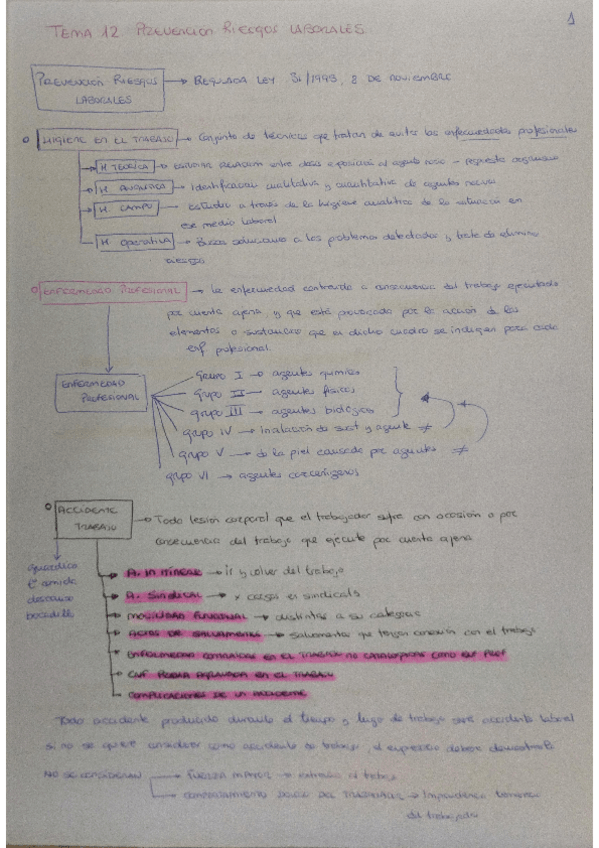 1
TEMA 12 PREVENCIÓN RIESGOS LABORALES
PREVENCIÓN RIESGOS LABORALES → REGULADA LEY 31/1995, 8 DE NOVIEMBRE
HIGIENE EN EL TRABAJO → Conjunto de técnicas que tratan de evitar las enfermedades profesionales
H TEORICA → relación entre dosis exposición al agente - respuesta
H ANALITICA → Identificación cualitativa y cuantitativa de agentes nocivos
H CAMPO → estudio a través de la higiene analítica de la situación en
ese medio laboral
H operativa → Busca soluciones a los problemas detectados y trata de eliminar
riesgos
ENFERMEDAD PROFESIONAL → la enfermedad contraida a consecuencia del trabajo ejecutado
por cuenta ajena, y que está provocado por la acción de los
elementos o sustancias que en dicho cuadro se indiquen para cada
enf. profesional.
ENFERMEDAD PROFESIONAL
Grupo I → agentes quimicos
Grupo II → agentes físicos
grupo III → agentes biológicos
grupo IV → inalación de sust y agente ≠
grupo V → de la piel causada por agentes ≠
grupo VI → agentes
ACCIDENTE TRABAJO → Toda lesion corporal que el trabajador sufre con ocasión o por
consecuencia del trabajo que ejecute por cuenta ajena
comida
descanso
bocadillo
A. IN ITINERE → ir y volver del trabajo
A. SINDICAL → x cargos sindicals
MOVILIDAD FUNCIONAL → distintas a su categoria
ACTOS DE SALVAMENTO → salvamentos que tengan conexión con el trabajo
ENFERMEDAD CONTRAIDAS EN EL TRABAJO NO CATALOGADAS COMO ENF PROF
ENF AGRAVADA EN EL TRABAJO
COMPLICACIONES DE UN ACCIDENTE
Todo accidente producido durante el tiempo y lugar de trabajo será accidente laboral
si no se quiere considerar como accidente de trabajo, el empresario deberá demostrarlo
NO SE CONSIDERAN
FUERZA MAYOR → extraña al trabajo
COMPORTAMIENTO DOLOSO DEL TRABAJADOR → Imprudencia temeraria
del trabajador